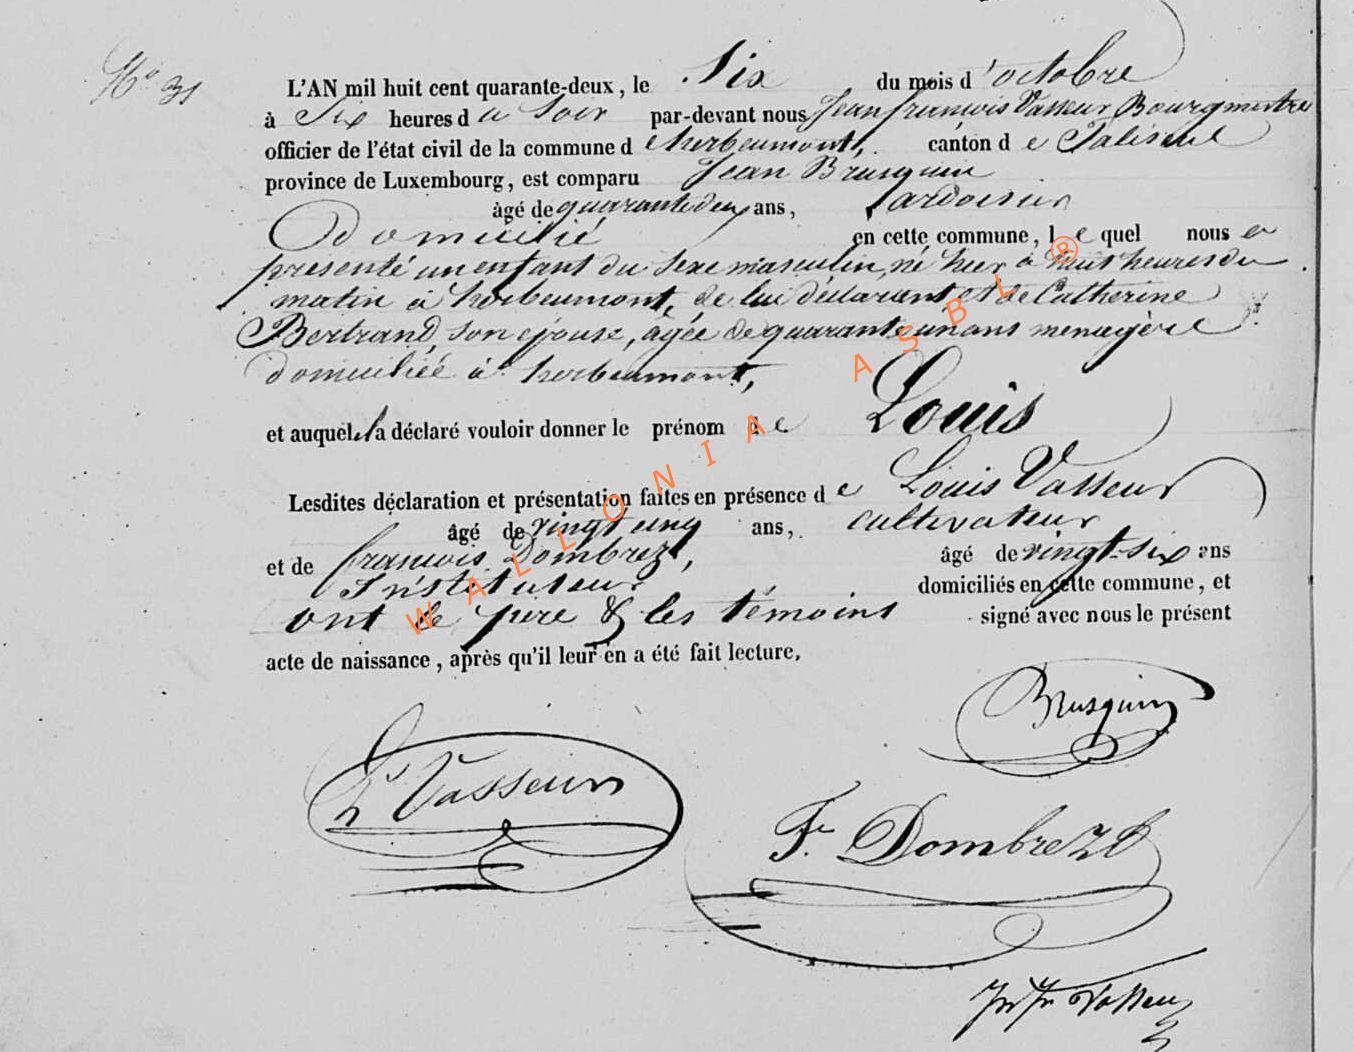 No 31
L'AN mil huit cent quarante-deux, le Six du mois d'octobre
à Six heures du Soir par-devant nous Jean françois Vasseur Bourgmestre
officier de l'état civil de la commune d'herbeumont, canton de Paliseul
province de Luxembourg, est comparu Jean Brusquin
âgé de quarante deux ans, ardoisier
domicilié en cette commune, lequel nous a
présenté un enfant du sexe masculin, né hier à huit heures du
matin à herbeumont, de lui déclarant et de Catherine
Bertrand, son épouse, agée de quarante un ans menagère
domiciliée à herbeumont,
et auquel il a déclaré vouloir donner le prénom de Louis
Lesdites déclaration et présentation faites en présence de Louis Vasseur
âgé de vingt cinq ans, cultivateur
et de françois Dombrez, âgé de vingt-six ans
Instituteur domiciliés en cette commune, et
ont le père & les témoins signé avec nous le présent
acte de naissance, après qu'il leur en a été fait lecture.
Brusquin
Ls Vasseur
Fr Dombrez
Jn Fr Vasseur
WALLONIA ASBL ®